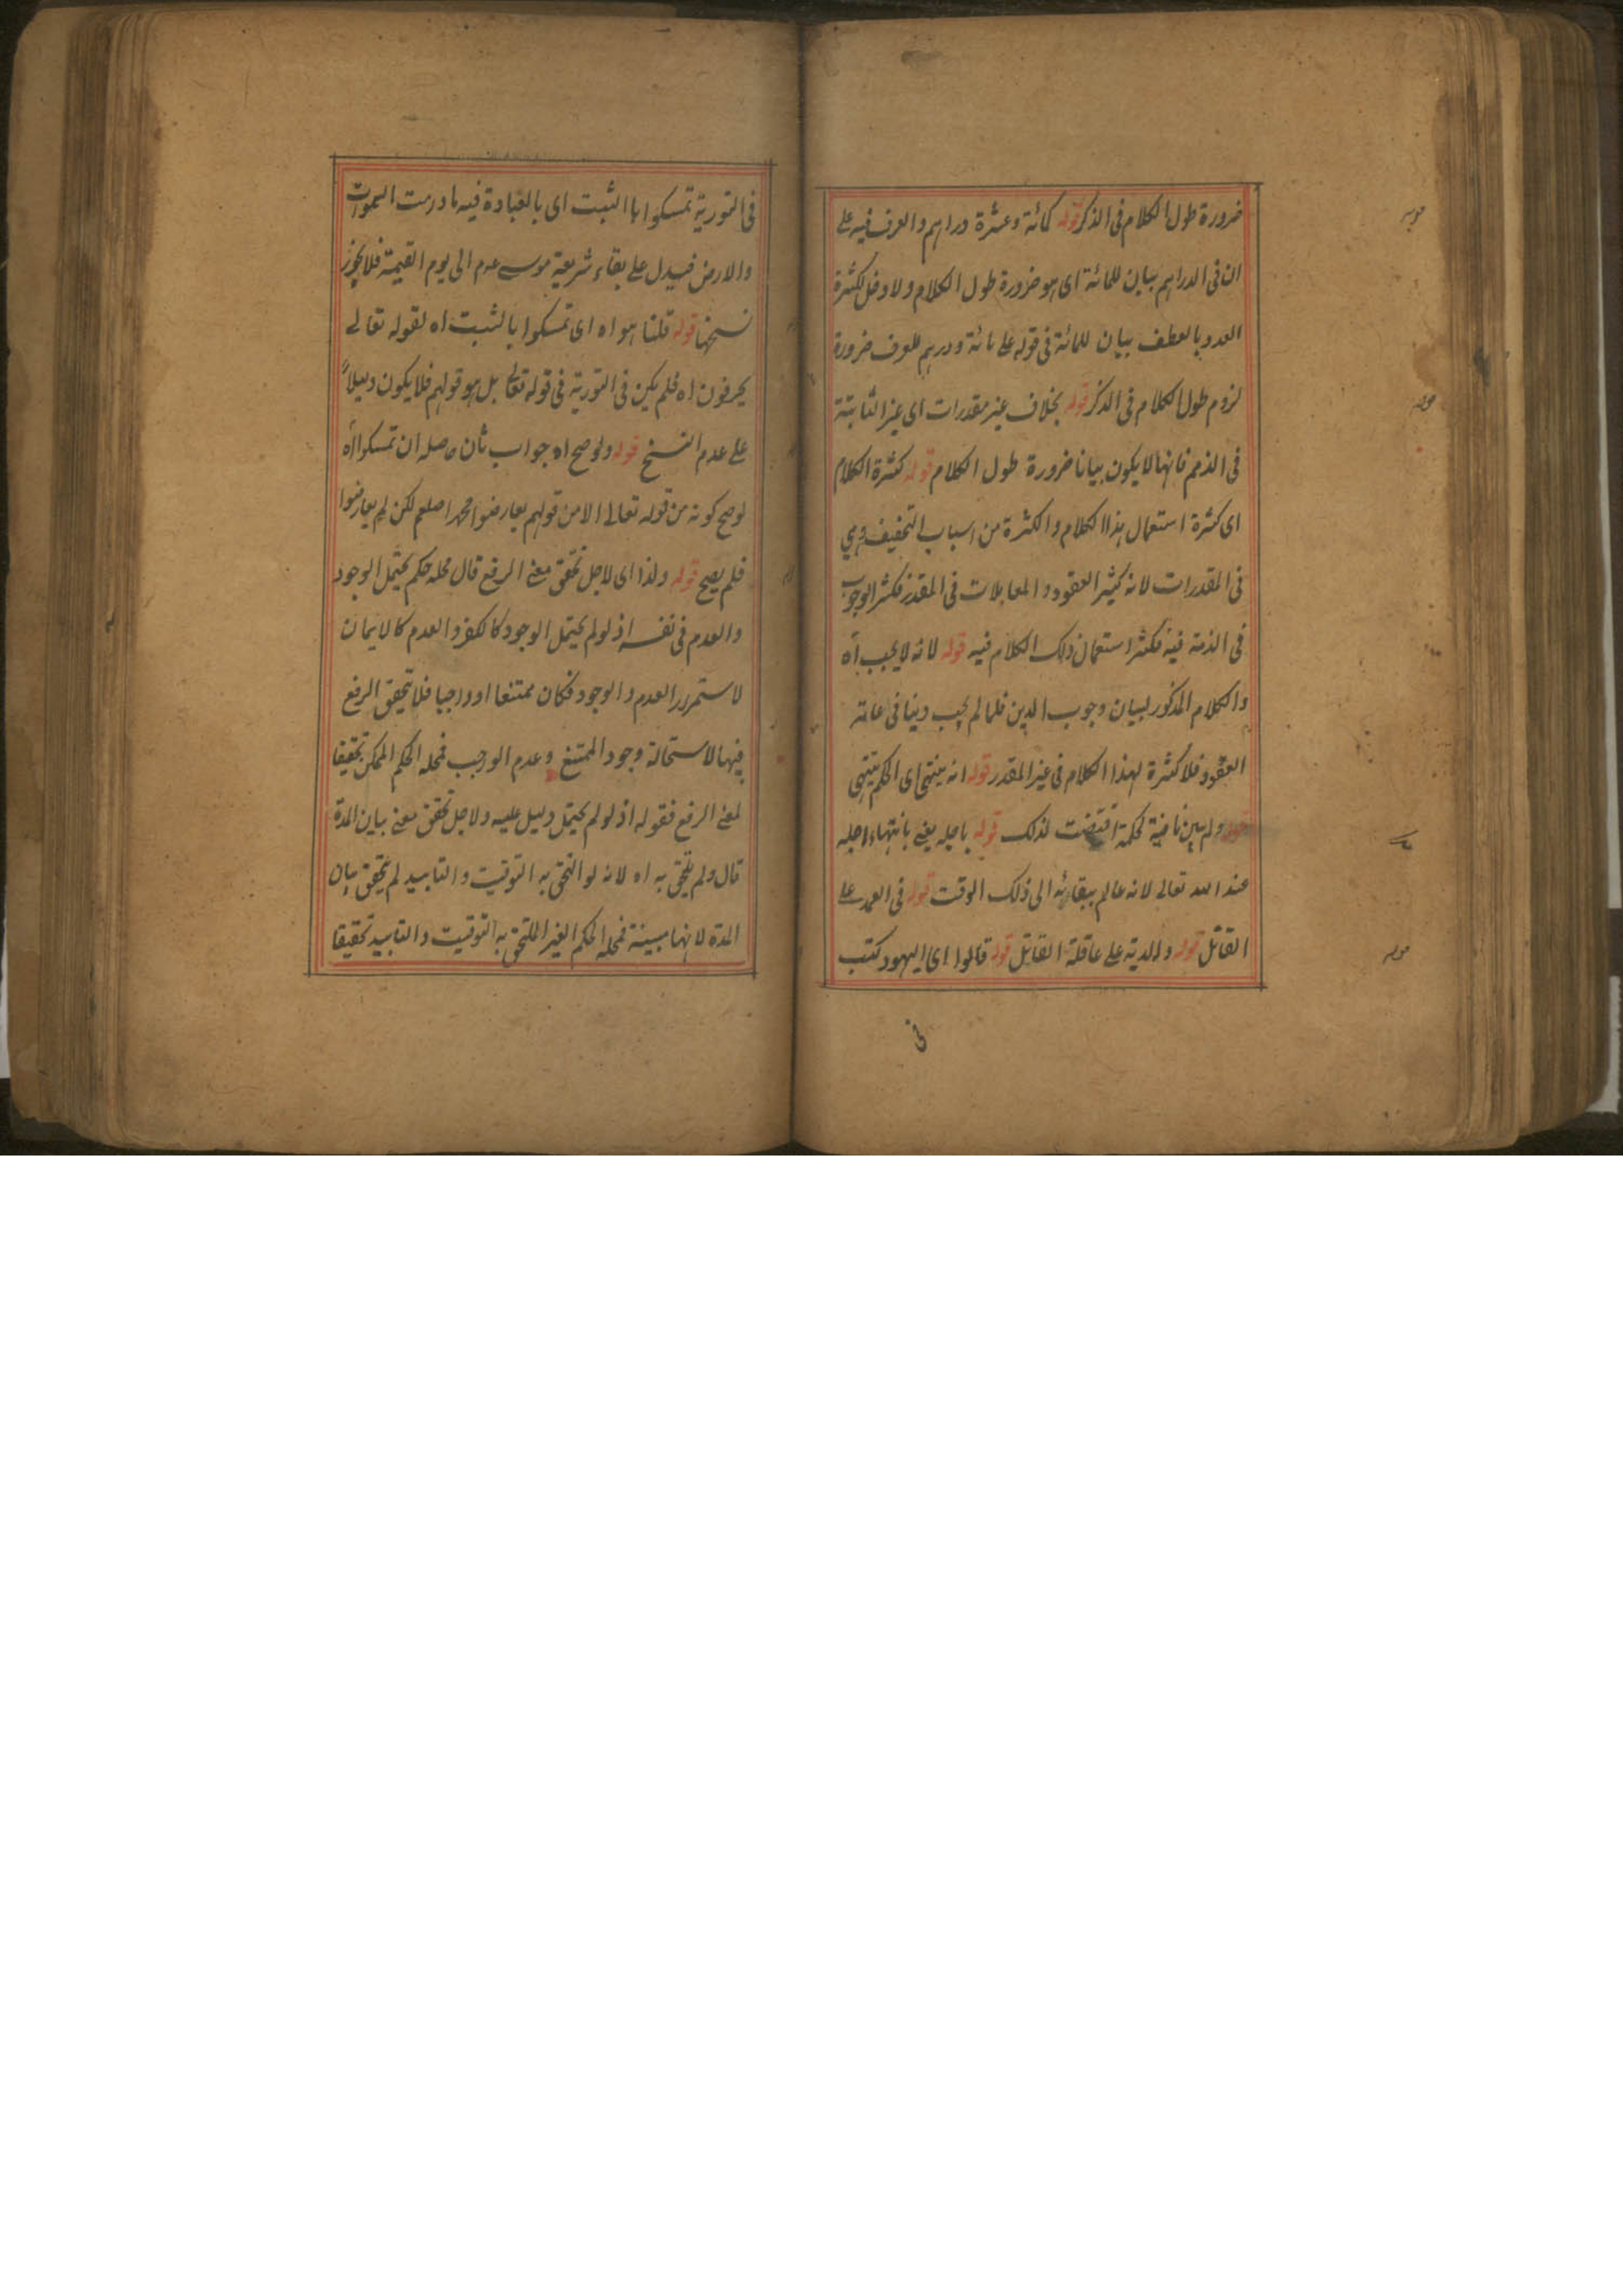 ضرورة طول الكلام فى الذكر قوله كمائة وعشرة دراهم والعرف فيه على
ان فى الدراهم بيان للمائة اى هو ضرورة طول الكلام ولا دخل لكثرة
العدد بالعطف بيان للمائة فى قوله على مائة ودرهم للعرف ضرورة
لزوم طول الكلام فى الذكر قوله بخلاف غير مقدرات اى غير الثابتة
فى الذمم فانها لا يكون بيانا ضرورة طول الكلام قوله كثرة الكلام
اى كثرة استعمال هذا الكلام والكثرة من اسباب التخفيف وهي
فى المقدرات لانه كثير العقود والمعاملات فى المقدر فكثر الوجوب
فى الذمة فيه فكثر استعمال ذلك الكلام فيه قوله لانه لا يجب اه
والكلام المذكور لبيان وجوب الدين فلما لم يجب دينا فى عامة
العقود فلا كثرة لهذا الكلام فى غير المقدر قوله انه ينتهى اى الحكم ينتهى
قوله ولم يبين لحكمة اقتضت لذلك قوله باجله يعنى بانتهاء اجله
عند الله تعالى لانه عالم ببقائه الى ذلك الوقت قوله فى العمد على
القاتل قوله والدية على عاقلة القاتل قوله قالوا اى اليهود كتب
فى
فى التورية تمسكوا باالثبت اى بالعبادة فيه مادرمت السموات
والارض فيدل على بقاء شريعة موسى عدم الى يوم القيمة فلا يجوز
نسخها قوله قلنا هو اه اى تمسكوا بالثبت اه لقوله تعالى
يحرفون اه فلم يكن فى التورية فى قوله تعالى بل هو قولهم فلا يكون دليلاً
على عدم النسخ قوله ولو صح اه جواب ثان حاصله ان تمسكوا اه
لو صح كونه من قوله تعالى لا من قولهم يعارضوا محمدا صلعم لكن لم يعارضوا
فلم يصح قوله ولذا اى لاجل تحقق معنى الرفع قال محله حكم يحتمل الوجود
والعدم فى نفسه اذ لو لم يحتمل الوجود كالكفر والعدم كالايمان
لاستمرر العدم والوجود فكان ممتنعا او واجبا فلا يتحقق الرفع
فيهما لاستحالة وجود الممتنع وعدم الواجب فمحله الحكم الممكن تحقيقا
لمعنى الرفع فقوله اذ لو لم يحتمل دليل عليه ولاجل تحقق معنى بيان المدة
قال ولم يلتحق به اه لانه لو التحق به التوقيت والتابيد لم يتحقق بيان
المدة لانها مبينة فمحله الحكم الغير الملتحق به التوقيت والتابيد تحقيقا